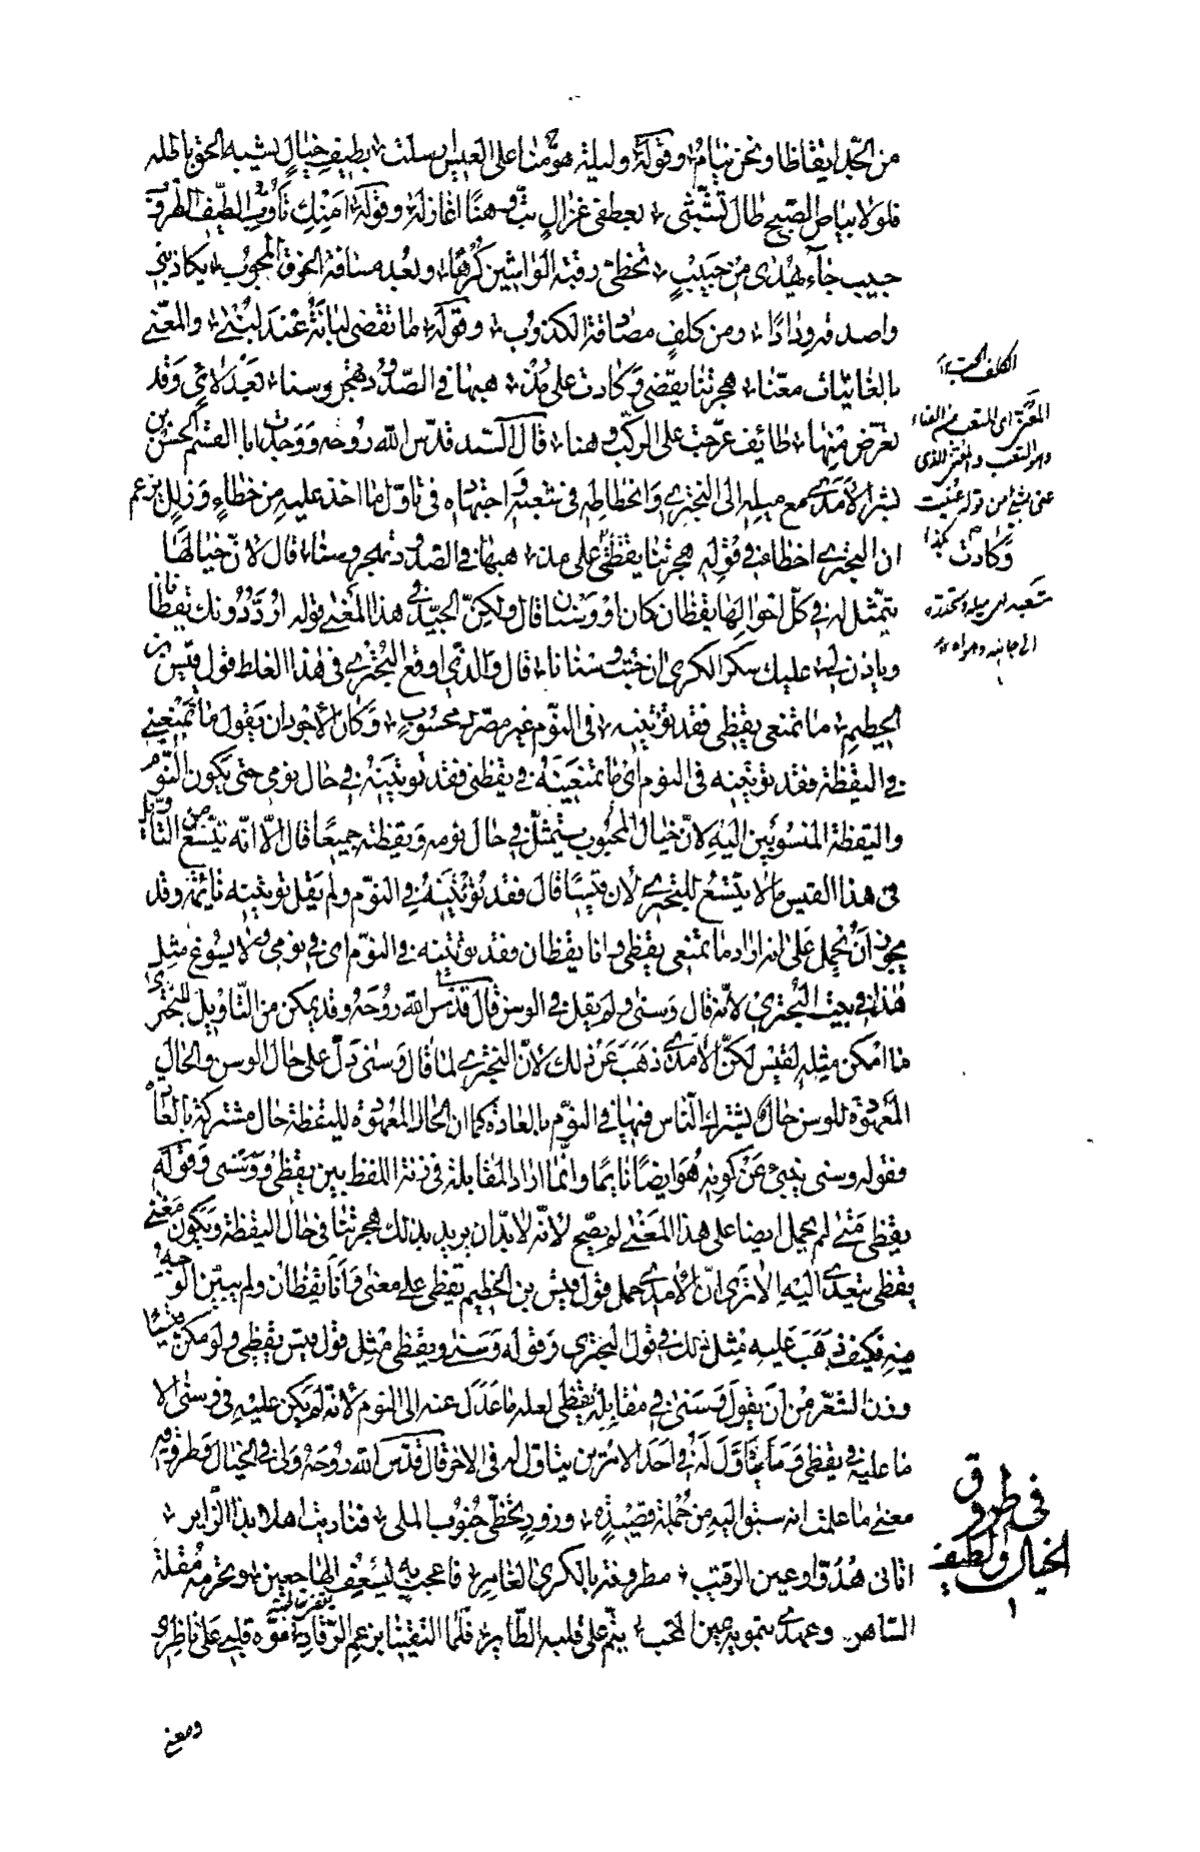 من الجد ايقاظا ونحن نيام وقوله وليلة هومنا على العيس ارسلت بطيف خيال يشبه الحق باطله
فلولا بياض الصبح طال تشبثى بعطفى غزال بت وهنا اغازله وقوله امنك تأوب الطيف الطروب
حبيب جآء يهدى من حبيب تخطى رقبة الواشين كرها وبعد مسافة الخرق المجوب يكاذبنى
واصدقه ودادا ومن كلف مصادقة الكذوب وقوله ما تقضى لبانة عند لبنى والمعنى
بالغانيات معنا هجرتنا يقضى وكادت على مذ هبها فى الصدود تهجر وسنا بعد لاى وقد
تعرض منها طائف عرجت على الركب وهنا قال السيد قدس الله روحه ووجدت ابا القسم الحسن بن
بشر الآمدى مع ميله الى البحترى وانحطاطه فى شعبه واجتهاده فى تاول ما اخذ عليه من خطاء وزلل يزعم
ان البحترى اخطاء فى قوله هجرتنا يقظى على مذ هبها فى الصدود تهجر وسنا قال لان خيالها
يتمثل له فى كل احوالها يقظان كان او وسنان قال ولكن الجيد فى هذا المعنى قوله اردّ دونك يقظانا
وياذن لى عليك سكر الكرى ان جئت وسنانا قال والذى اوقع البحترى فى هذا الغلط قول قيس بن
الخطيم ما تمنعى يقظى فقد تؤتينه فى النوم غير مصرد محسوب وكان الاجود ان يقول ما تمنعينى
فى اليقظة فقد تؤتينه فى النوم اى ما تمنعينه فى يقظتى فقد تؤتينه فى حال نومى حتى يكون النوم
واليقظة المنسوبين اليه لان خيال المحبوب يتمثل فى حال نومه ويقظته جميعا قال الا انه يتسع من التأويل
فى هذا القيس ما لا يتسع للبحترى لان قيسا قال فقد تؤتينه فى النوم ولم يقل تؤتينه نائمة وقد
يجوز ان يحمل على انه اراد ما تمنعى يقظى وانا يقظان فقد تؤتينه فى النوم اى فى نومى ولا يسوغ مثل
هذا فى بيت البحترى لانه قال وسنى ولم يقل فى الوسن قال قدس الله روحه وقد يمكن من التاويل للبحترى
ما امكن مثله لقيس لكن الآمدى ذهب عن ذلك لان البحترى لما قال وسنى دل على حال الوسن والحال
المعهودة للوسن حال يشترك الناس فيها فى النوم بالعادة كما ان الحال المعهودة لليقظة حال مشتركة بالعادة
فقوله وسنى ينبىء عن كونه هو ايضا نائما وانما اراد المقابلة فى زنة اللفظ بين يقظى ووسنى وقوله
يقظى متى لم يحمل ايضا على هذا المعنى لم يصح لانه لا بد ان يريد بذلك هجرتنا فى حال اليقظة ويكون معنى
يقظى يتعدى اليه الا ترى ان الآمدى حمل قول قيس بن الخطيم يقظى على معنى وانا يقظان ولم يبين الوجه
فيه فكيف ذهب عليه مثل ذلك فى قول البحترى وقوله وسنى ويقظى مثل قول قيس يقظى ولو مكن قيسا
وزن الشعر من ان يقول وسنى فى مقابلة يقظى لعله ما عدل عنه الى النوم لانه لم يكن عليه فى وسنى الا
ما عليه فى يقظى وما يتاول له فى احد الامرين يتاول له فى الاخر قال قدس الله روحه ولى فى الخيال وطروقه
معنى ما علمت انه سبق اليه من جملة قصيدة وزور تخطى جنوب الملى فناديت اهلا بذا الزاير
اتانى هدوا وعين الرقيب مطروفة بالكرى الغامر فاعجب به يسعف الهاجعين وتحرمه مقلة
الساهر وعهدى بتمويه عين المحب ينم على قلبه الطاير فلما التقينا بزعم الرقاد موه قلبى على ناظرى
ومعنى
الكلف المحب
المعنى اى المتعب من العناء
وهو التعب والمعنى الذى
عنى بشئ من قوله عنيت
وكادت كذا
شعبه اى ميله
الى جانبه وهواه
فى طروق
الخيال والطيف